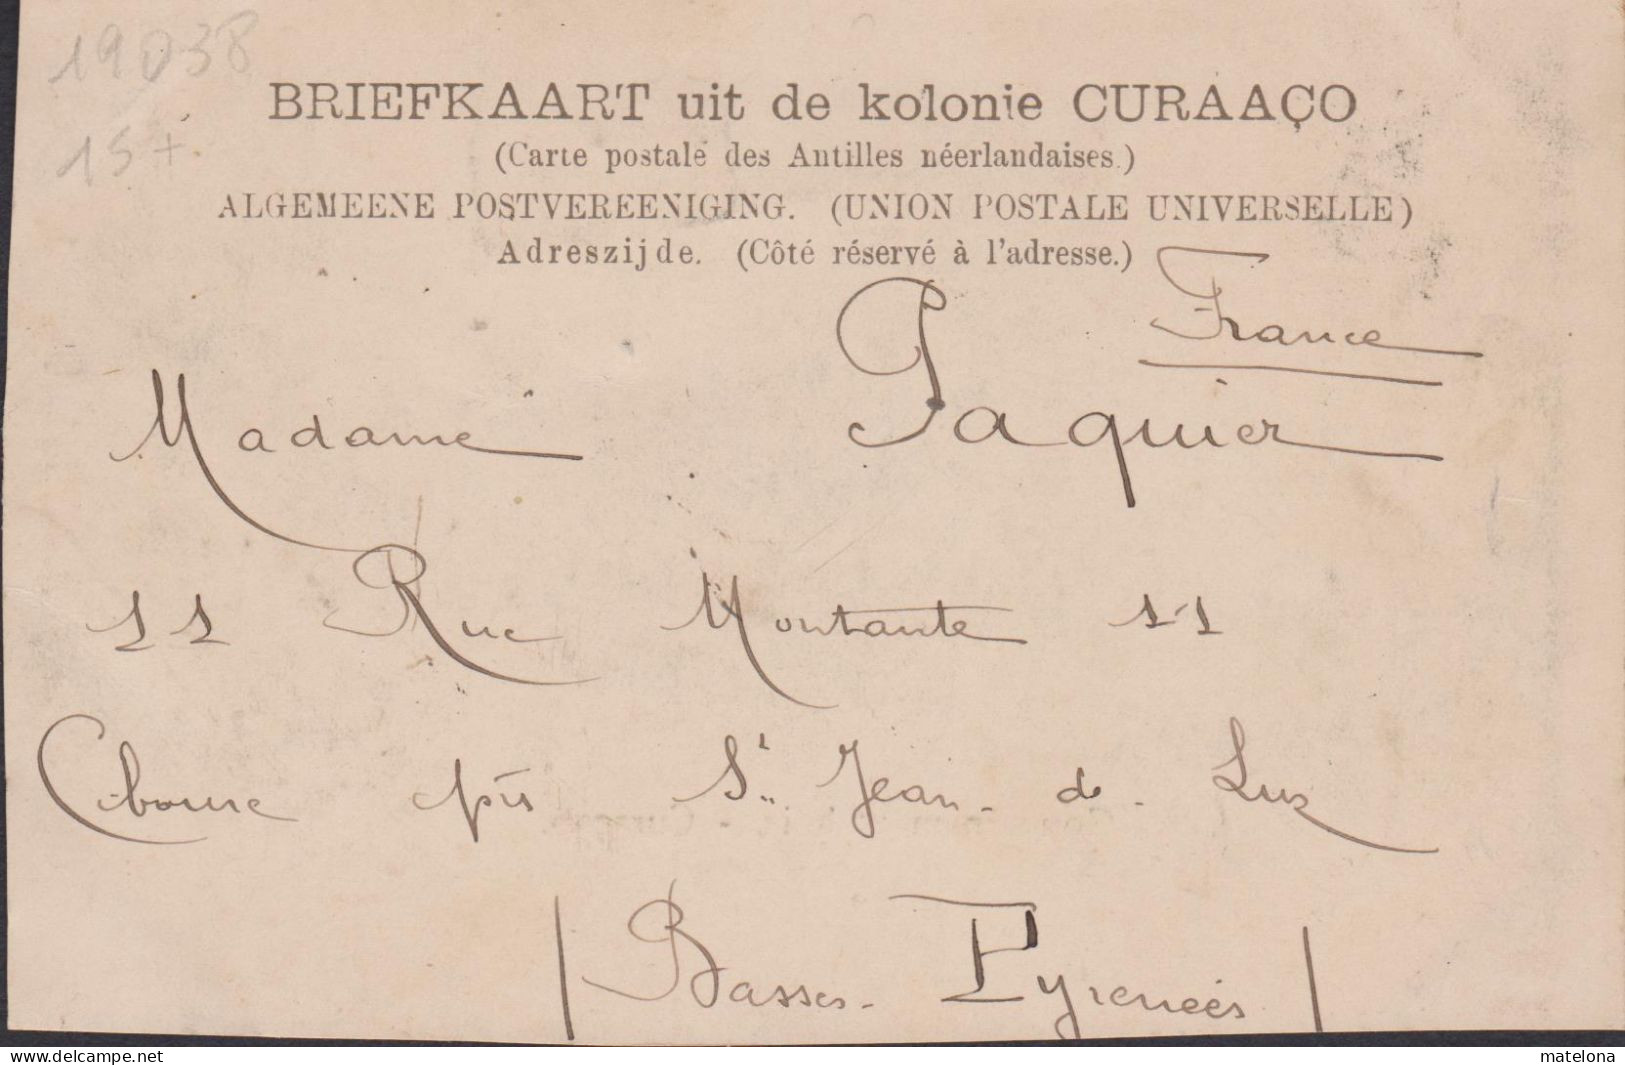 19038
15+
BRIEFKAART uit de kolonie CURAAÇO
(Carte postale des Antilles néerlandaises.)
ALGEMEENE POSTVEREENIGING. (UNION POSTALE UNIVERSELLE)
Adreszijde. (Côté réservé à l'adresse.)
France
Madame Paquier
11 Rue Montante 11
Ciboure près St Jean-de-Luz
| Basses-Pyrénées |
www.delcampe.net
matelona